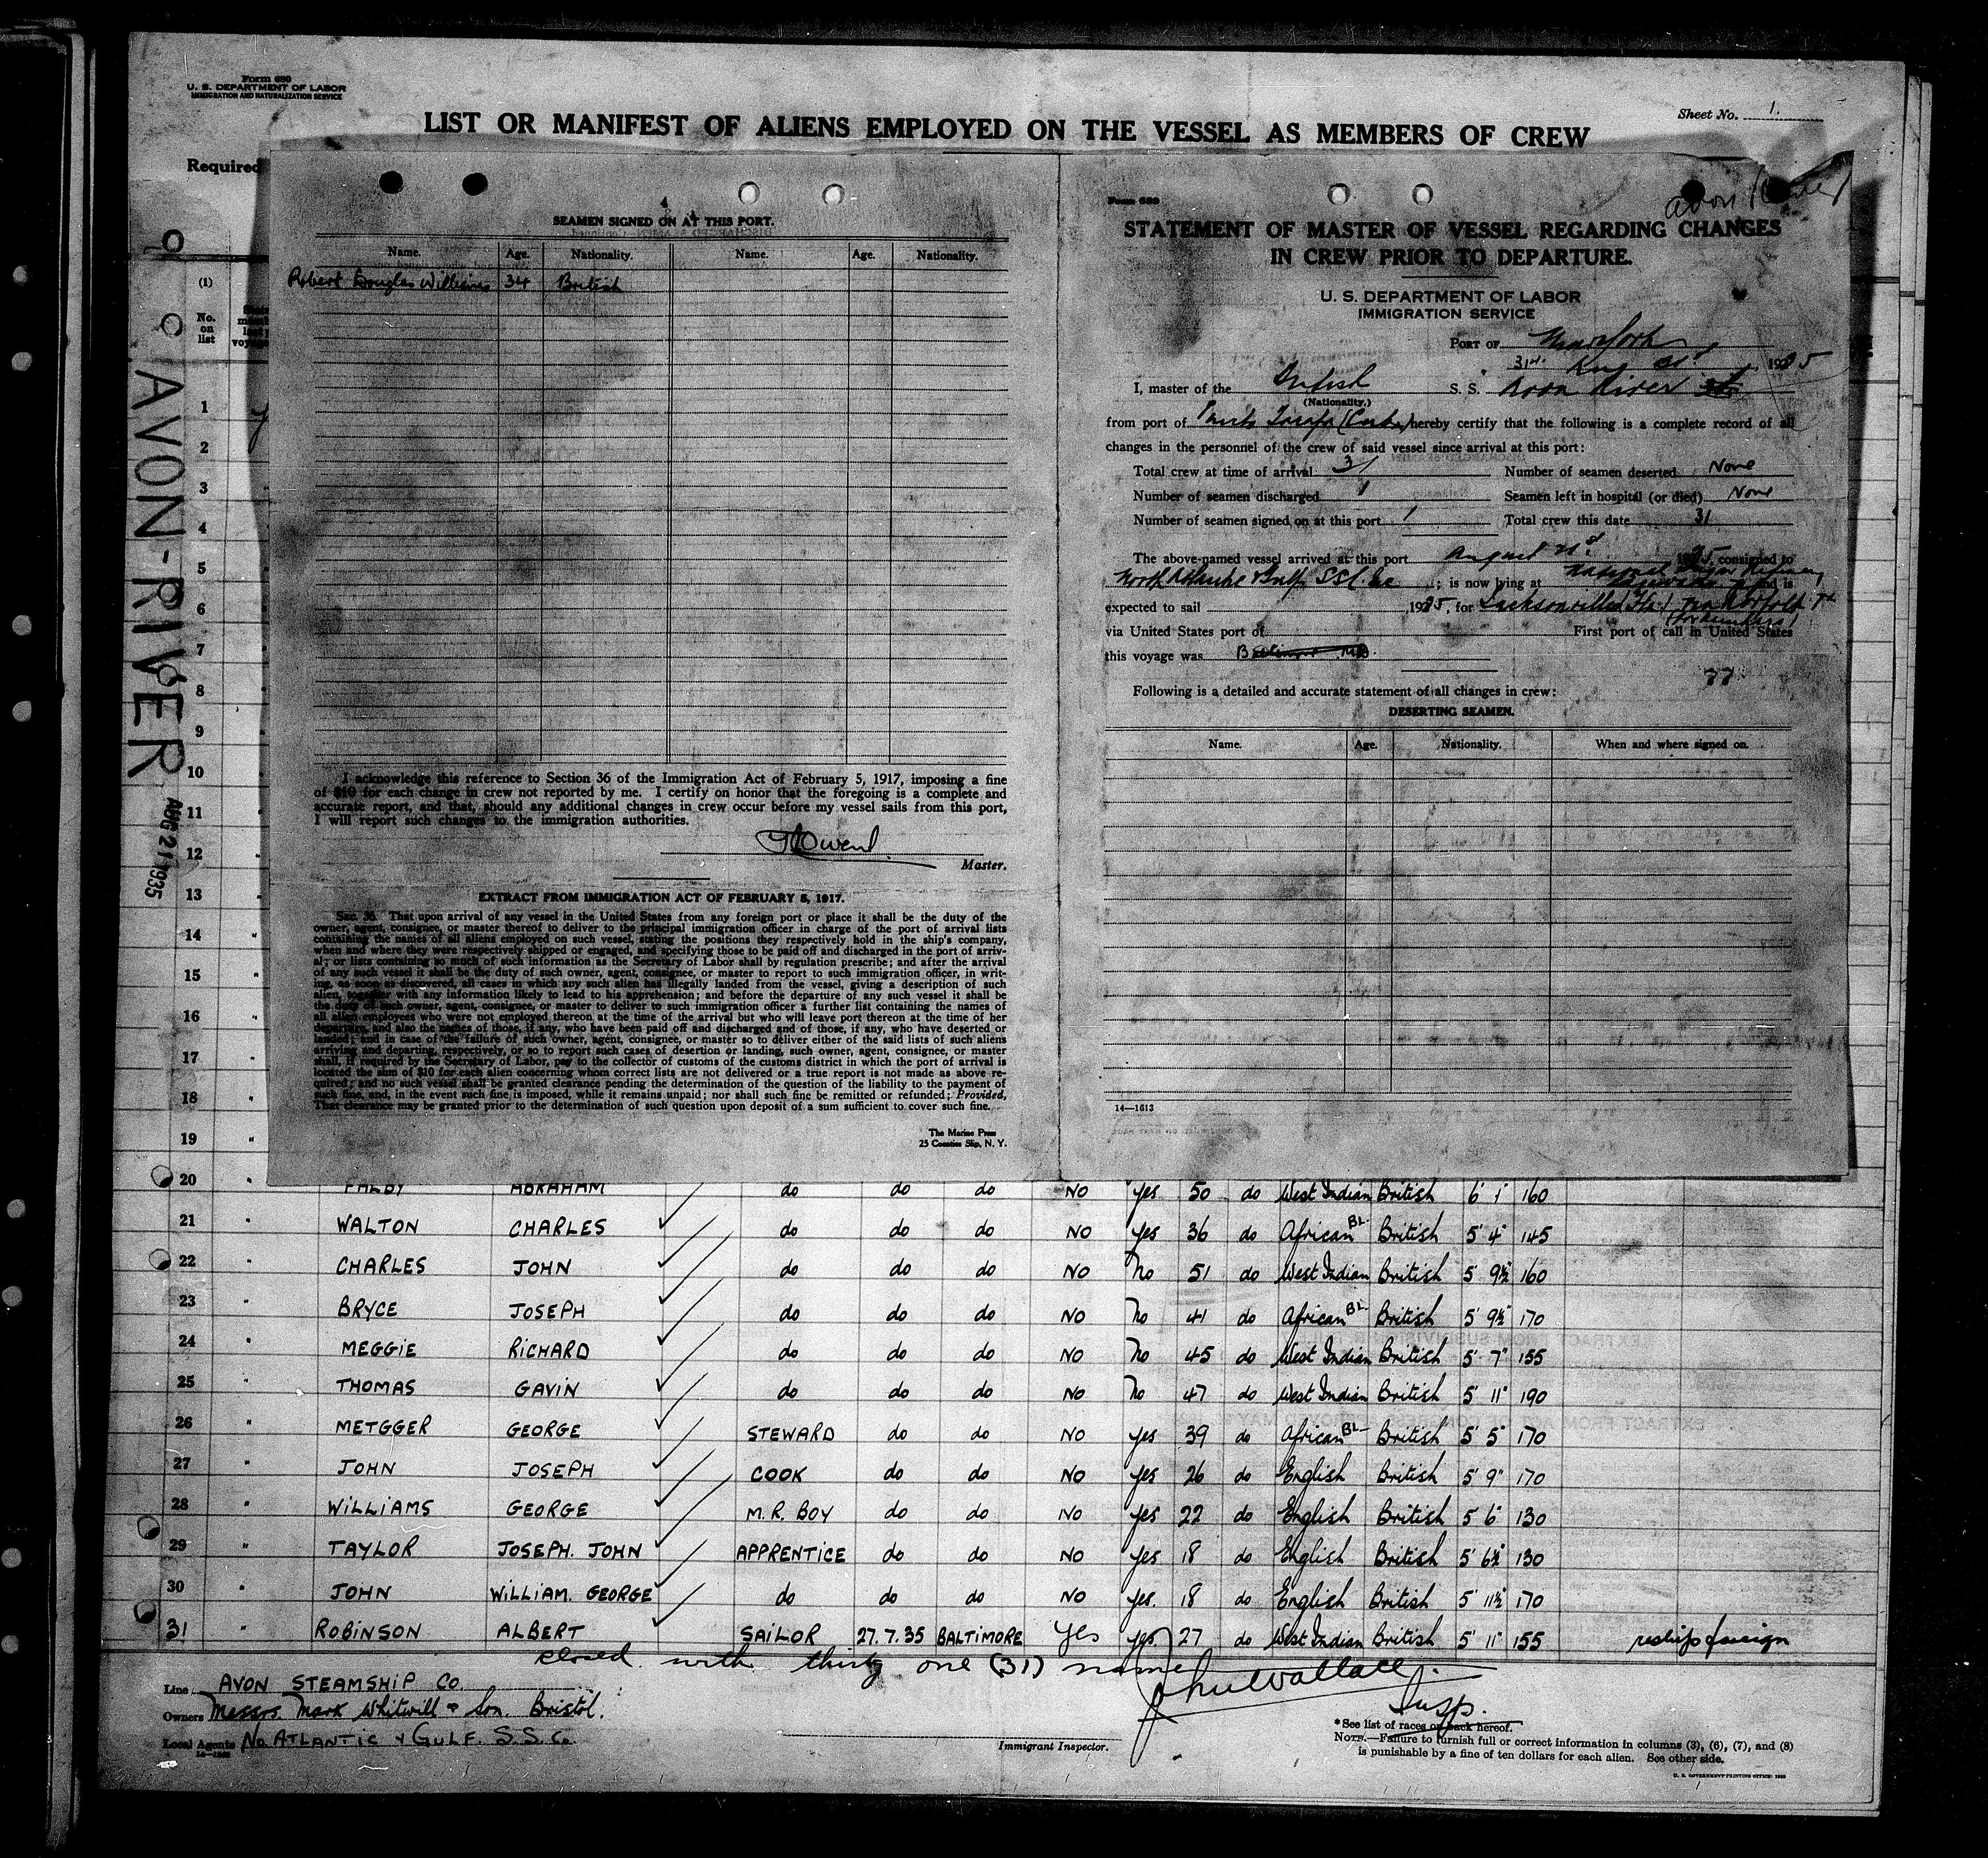 Form 680
U. S. DEPARTMENT OF LABOR
IMMIGRATION AND NATURALIZATION SERVICE
Sheet No. 1.
LIST OR MANIFEST OF ALIENS EMPLOYED ON THE VESSEL AS MEMBERS OF CREW
Required
(1)
No. on list
AVON-RIVER
AUG 21 1935
4
SEAMEN SIGNED ON AT THIS PORT.
Name. Age. Nationality. Name. Age. Nationality.
Robert Douglas Williams 34 British
I acknowledge this reference to Section 36 of the Immigration Act of February 5, 1917, imposing a fine
of $10 for each change in crew not reported by me. I certify on honor that the foregoing is a complete and
accurate report, and that, should any additional changes in crew occur before my vessel sails from this port,
I will report such changes to the immigration authorities.
Owens
Master.
EXTRACT FROM IMMIGRATION ACT OF FEBRUARY 5, 1917.
Sec. 36. That upon arrival of any vessel in the United States from any foreign port or place it shall be the duty of the
owner, agent, consignee, or master thereof to deliver to the principal immigration officer in charge of the port of arrival lists
containing the names of all aliens employed on such vessel, stating the positions they respectively hold in the ship's company,
when and where they were respectively shipped or engaged, and specifying those to be paid off and discharged in the port of arriv-
al; or lists containing so much of such information as the Secretary of Labor shall by regulation prescribe; and after the arrival
of any such vessel it shall be the duty of such owner, agent, consignee, or master to report to such immigration officer, in writ-
ing, as soon as discovered, all cases in which any such alien has illegally landed from the vessel, giving a description of such
alien, together with any information likely to lead to his apprehension; and before the departure of any such vessel it shall be
the duty of such owner, agent, consignee, or master to deliver to such immigration officer a further list containing the names of
all alien employees who were not employed thereon at the time of the arrival but who will leave port thereon at the time of her
departure, and also the names of those, if any, who have been paid off and discharged and of those, if any, who have deserted or
landed; and in case of the failure of such owner, agent, consignee, or master so to deliver either of the said lists of such aliens
arriving and departing, respectively, or so to report such cases of desertion or landing, such owner, agent, consignee, or master
shall, if required by the Secretary of Labor, pay to the collector of customs of the customs district in which the port of arrival is
located the sum of $10 for each alien concerning whom correct lists are not delivered or a true report is not made as above re-
quired; and no such vessel shall be granted clearance pending the determination of the question of the liability to the payment of
such fine, and, in the event such fine is imposed, while it remains unpaid; nor shall such fine be remitted or refunded: Provided,
That clearance may be granted prior to the determination of such question upon deposit of a sum sufficient to cover such fine.
The Marine Press
25 Coenties Slip, N. Y.
Form 689
Avon River
STATEMENT OF MASTER OF VESSEL REGARDING CHANGES
IN CREW PRIOR TO DEPARTURE.
U. S. DEPARTMENT OF LABOR
IMMIGRATION SERVICE
PORT OF New York
31st Aug , 1935
I, master of the British S. S. Avon River
(Nationality.)
from port of (Cuba) hereby certify that the following is a complete record of all
changes in the personnel of the crew of said vessel since arrival at this port:
Total crew at time of arrival 31 Number of seamen deserted None
Number of seamen discharged 1 Seamen left in hospital (or died) None
Number of seamen signed on at this port 1 Total crew this date 31
The above-named vessel arrived at this port August 21st 1935, consigned to
North Atlantic & Gulf SS Co. Inc ; is now lying at National Sugar Refinery and is
expected to sail 1935, for Jacksonville (Fla) via Norfolk
(for bunkers)
via United States port of First port of call in United States
this voyage was Baltimore Md.
77
Following is a detailed and accurate statement of all changes in crew:
DESERTING SEAMEN.
Name. Age. Nationality. When and where signed on.
14—1613
1
2
3
4
5
6
7
8
9
10
11
12
13
14
15
16
17
18
19 "
20 " ABRAHAM do do do NO yes 50 do West Indian British 6' 1" 160
21 " WALTON CHARLES do do do NO yes 36 do African BL. British 5' 4" 145
22 " CHARLES JOHN do do do NO No 51 do West Indian British 5' 9½" 160
23 " BRYCE JOSEPH do do do NO No 41 do African BL. British 5' 9½" 170
24 " MEGGIE RICHARD do do do NO No 45 do West Indian British 5' 7" 155
25 " THOMAS GAVIN do do do NO No 47 do West Indian British 5' 11" 190
26 " METGGER GEORGE STEWARD do do NO yes 39 do African BL- British 5' 5" 170
27 " JOHN JOSEPH COOK do do NO yes 26 do English British 5' 9" 170
28 " WILLIAMS GEORGE M. R. BOY do do NO yes 22 do English British 5' 6" 130
29 " TAYLOR JOSEPH. JOHN APPRENTICE do do NO yes 18 do English British 5' 6½" 130
30 " JOHN WILLIAM. GEORGE do do do NO yes. 18 do English British 5' 11½" 170
31 " ROBINSON ALBERT SAILOR 27.7.35 BALTIMORE Yes yes 27 do West Indian British 5' 11" 155 reship foreign
closed with thirty one (31) names
John Wallace
Insp.
Line AVON STEAMSHIP CO.
Owners Messrs. Mark Whitwill & Son. Bristol.
Local Agents No. ATLANTIC & GULF. S.S. Co.
Immigrant Inspector.
*See list of races on back hereof.
NOTE.—Failure to furnish full or correct information in columns (3), (6), (7), and (8)
is punishable by a fine of ten dollars for each alien. See other side.
U. S. GOVERNMENT PRINTING OFFICE